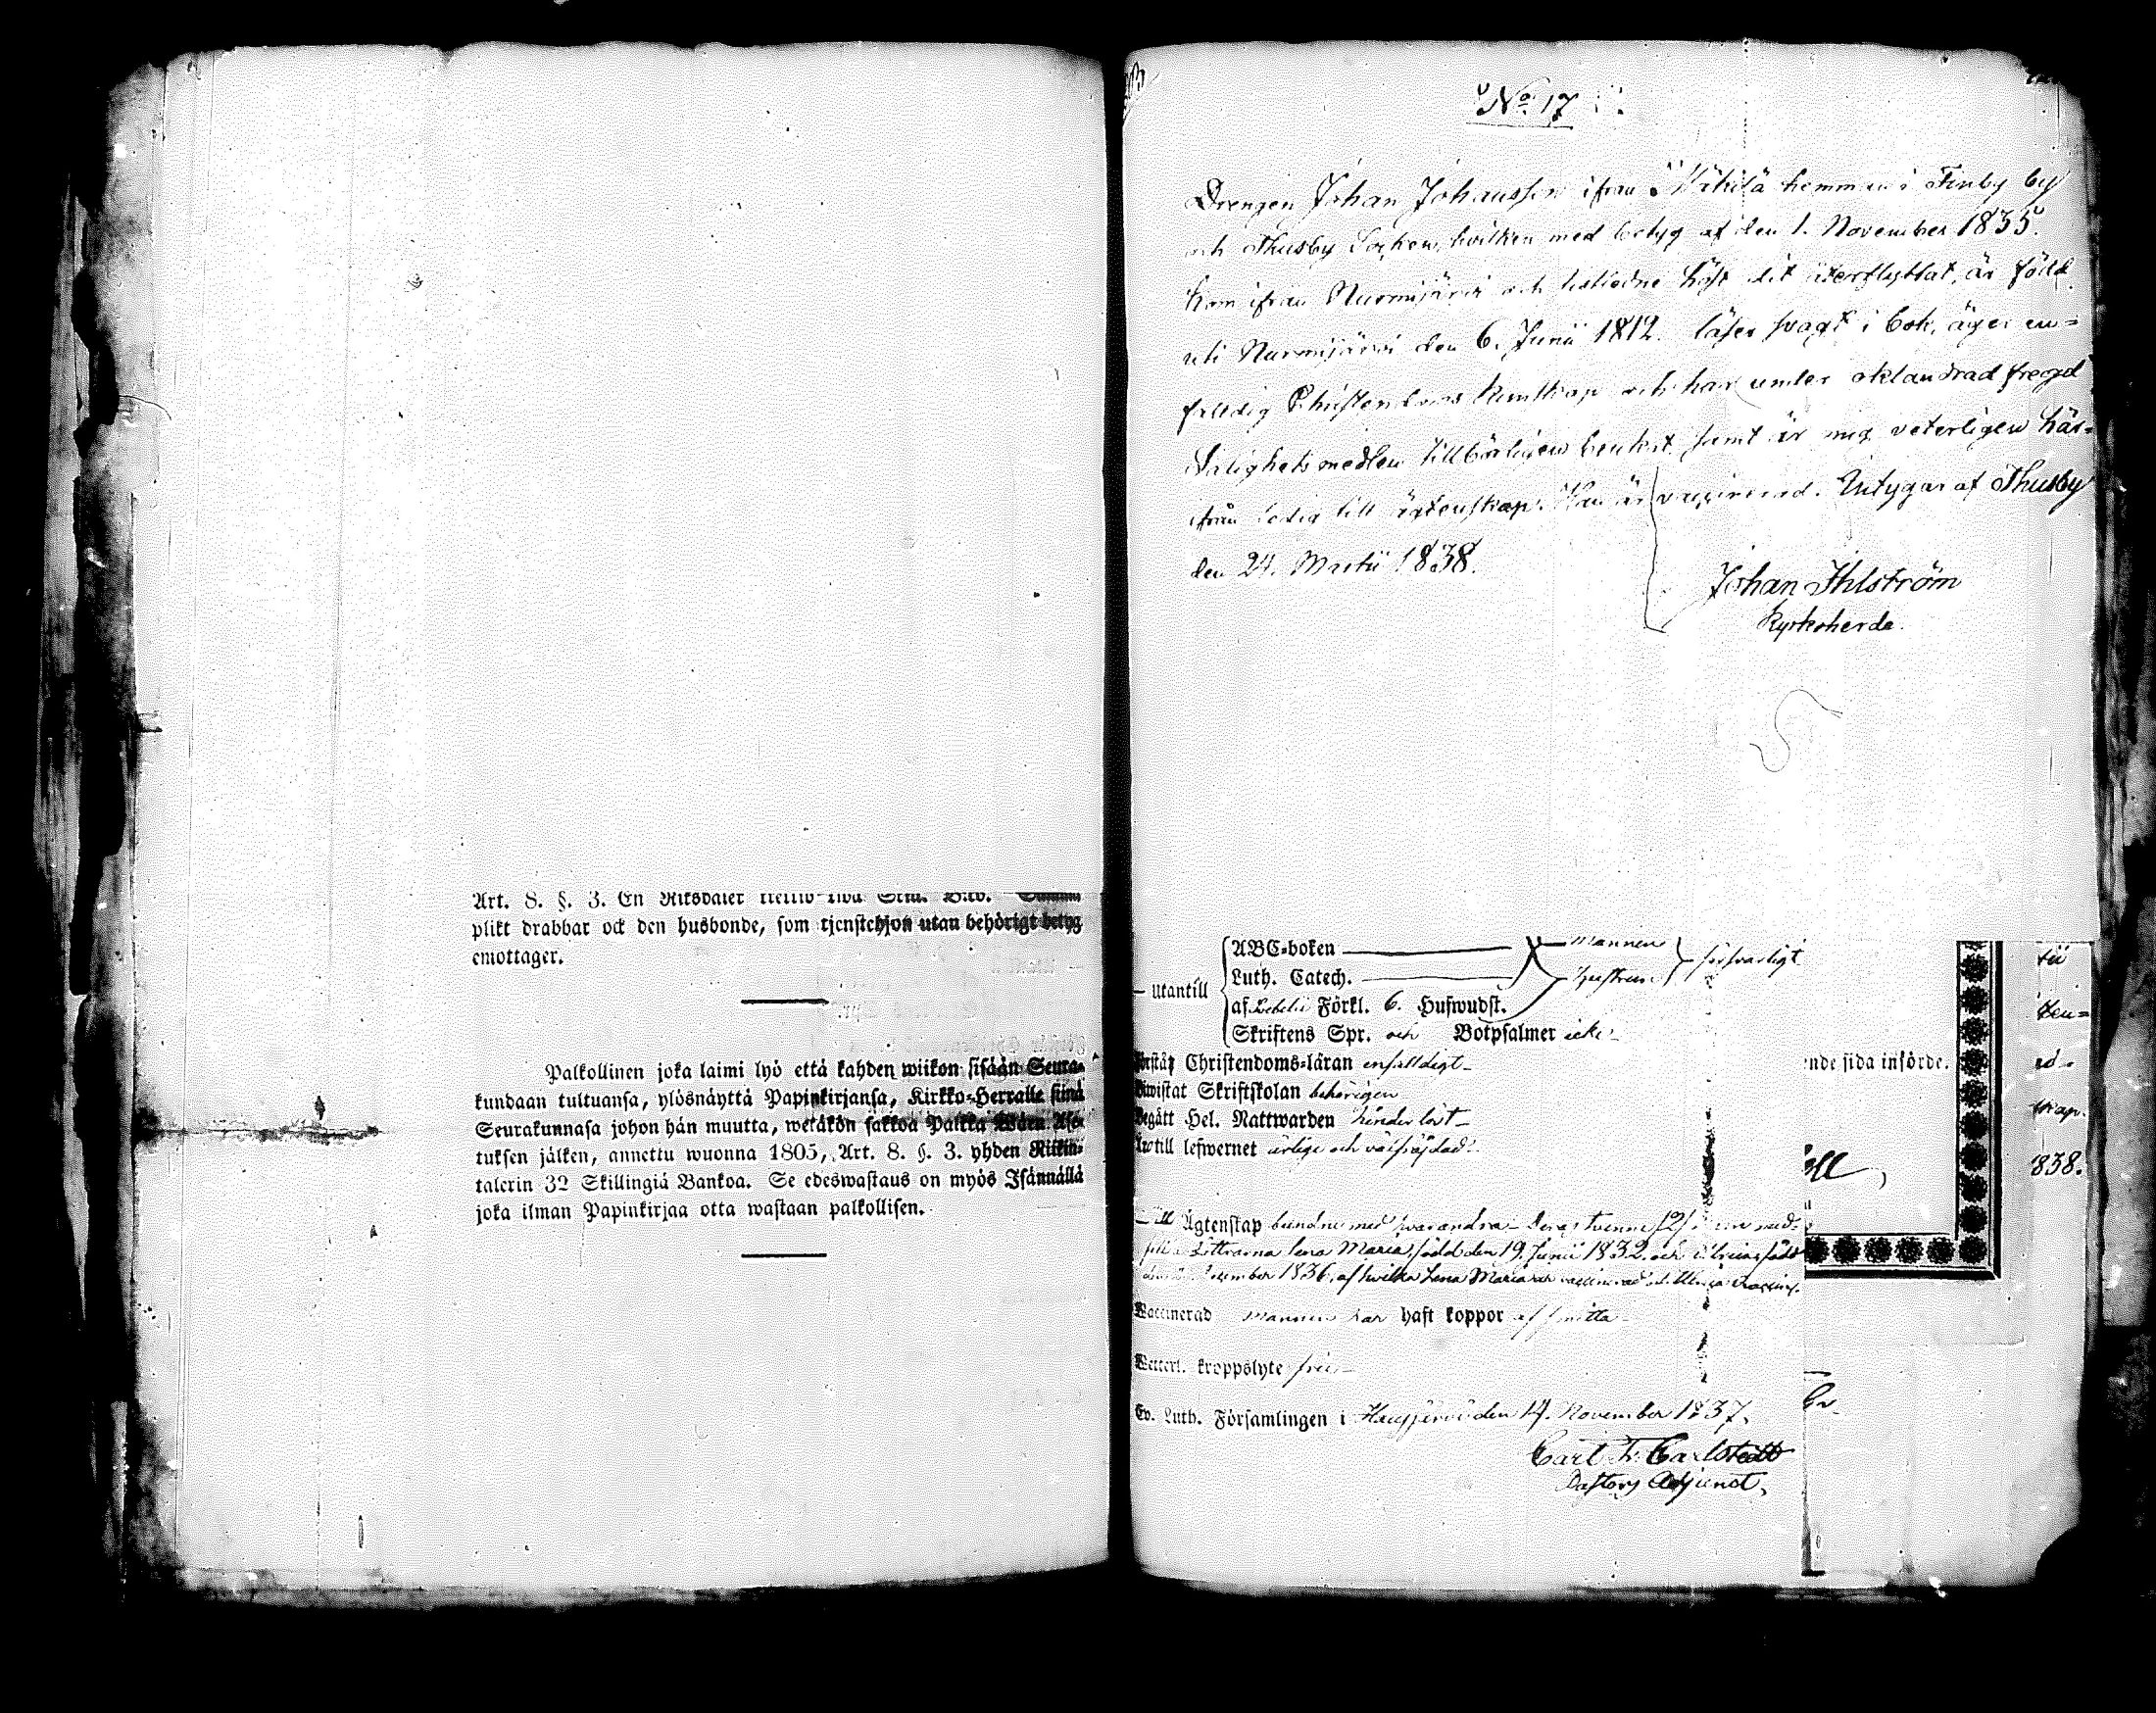 Art. 8. §. 3. En Riksdaler
plikt drabbar ock den husbonde, som tjenstehjon utan behörigt betyg
emottager.
Palkollinen joka laimi lyö että kahden wiikon sisään Seura-
kundaan tultuansa, ylösnäyttä Papinkirjansa, Kirkko-Herralle siinä
Seurakunnasa johon hän muutta, wetäkön sakkoa Palkka Wäen Ase-
tuksen jälken, annettu wuonna 1805, Art. 8. §. 3. yhden Riikin-
talerin 32 Skillingiä Bankoa. Se edeswastaus on myös Isännällä
joka ilman Papinkirjaa otta wastaan palkollisen.
No 17
Drengen Johan Johansson ifrån Mäkilä hemman i Finby by
och Thusby Socken, hvilken med betyg af den 1. November 1835.
kom ifrån Nurmijärvi och sistledne höst dit återflyttat, är född
uti Nurmijärvi den 6. Junii 1812. läser svagt i bok, äger en-
faldig Christendoms kunskap och har under oklandrad fregd
Salighetsmedlen tillbörligen brukat samt är mig veterligen här-
ifrån ledig till ägtenskap. Han är vaccinerad. Intygar af Thusby
den 24. Martii 1838.
Johan Ihlström
Kyrkoherde.
ABC-boken Mannen
Luth. Catech. Hustrun försvarligt
utantill
af Förkl. 6. Hufwudst.
Skriftens Spr. och Botpsalmer icke
Förstår Christendoms-läran enfaldigt
Biwistat Skriftskolan behörigen
Begått Hel. Nattwarden hinderlöst
till lefwernet ärlige och välfräjdade
till Ägtenskap bundne med hvarandra Deras tvenne (2)
döttrarna Lena Maria, född den 19. Junii 1832. och född
December 1836, af hvilka Lena Maria är vaccinerad
Vaccinerad Mannen har haft koppor af smitta
Vetterl. kroppslyte fria
Ev. Luth. Församlingen i Hausjärvi den 14. November 1837.
Carl Fr. Carlstedt
Pastors Adjunct.
nde sida införde.
tii
ten-
skap.
1838.